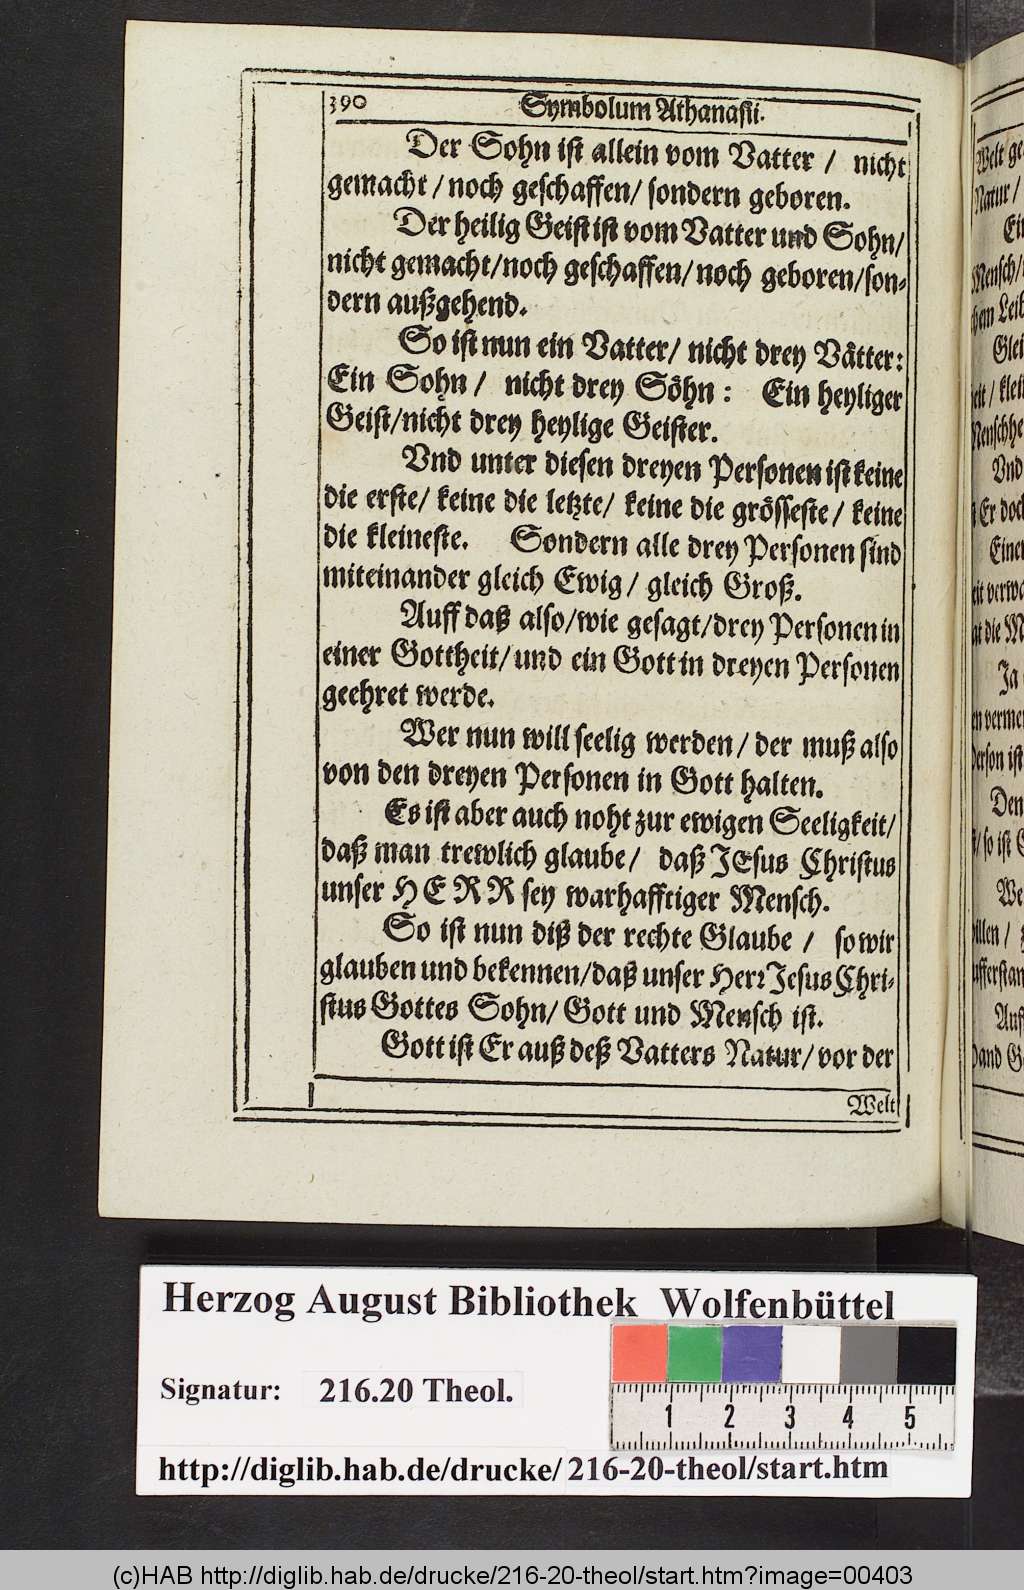 390 Symbolum Athanasii.
Der Sohn ist allein vom Vatter / nicht
gemacht / noch geschaffen / sondern geboren.
Der heilig Geist ist vom Vatter und Sohn /
nicht gemacht / noch geschaffen / noch geboren / son-
dern außgehend.
So ist nun ein Vatter / nicht drey Vätter:
Ein Sohn / nicht drey Söhn: Ein heyliger
Geist / nicht drey heylige Geister.
Vnd unter diesen dreyen Personen ist keine
die erste / keine die letzte / keine die grösseste / keine
die kleineste. Sondern alle drey Personen sind
miteinander gleich Ewig / gleich Groß.
Auff daß also / wie gesagt / drey Personen in
einer Gottheit / und ein Gott in dreyen Personen
geehret werde.
Wer nun will seelig werden / der muß also
von den dreyen Personen in Gott halten.
Es ist aber auch noht zur ewigen Seeligkeit /
daß man trewlich glaube / daß JEsus Christus
unser HERR sey warhafftiger Mensch.
So ist nun diß der rechte Glaube / so wir
glauben und bekennen / daß unser Herr Jesus Chri-
stus Gottes Sohn / Gott und Mensch ist.
Gott ist Er auß deß Vatters Natur / vor der
Welt
Herzog August Bibliothek Wolfenbüttel
Signatur: 216.20 Theol.
1 2 3 4 5
http://diglib.hab.de/drucke/216-20-theol/start.htm
(c)HAB http://diglib.hab.de/drucke/216-20-theol/start.htm?image=00403